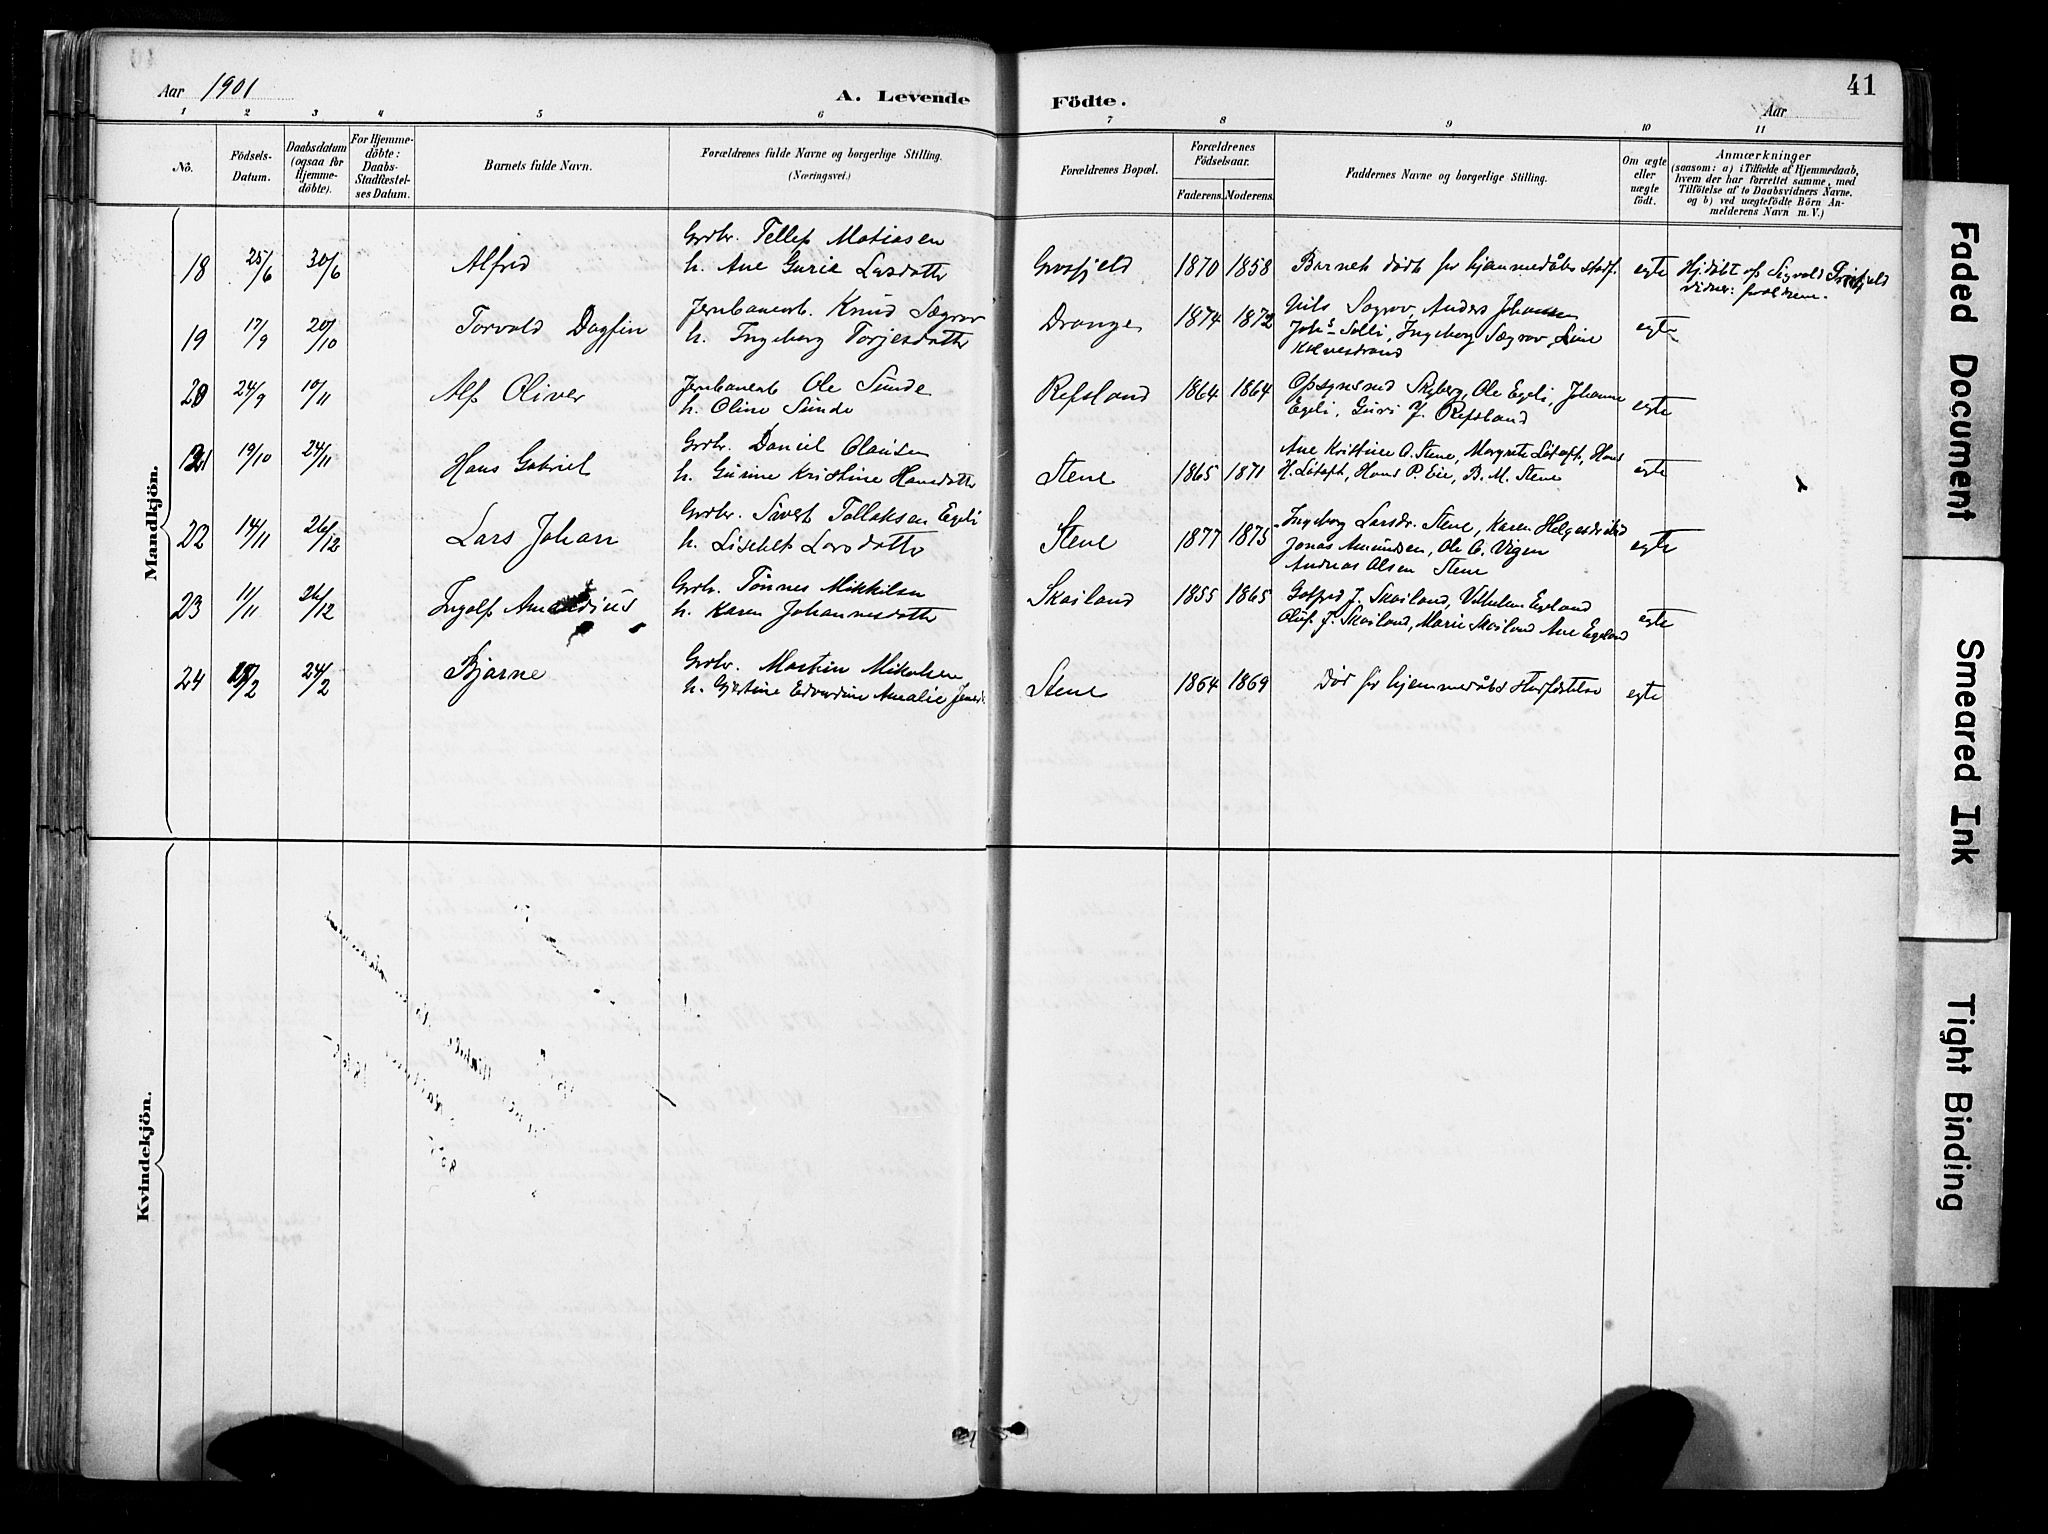 Aar 1901
A. Levende Födte.
Aar
41
1 2 3 4 5 6 7 8 9 10 11
Nô.
Födsels-Datum.
Daabsdatum (ogsaa for Hjemme-döbte).
For Hjemme-döbte: Daabs-Stadfæstel-ses Datum.
Barnets fulde Navn.
Forældrenes fulde Navne og borgerlige Stilling. (Næringsvei.)
Forældrenes Bopæl.
Forældrenes Födselsaar.
Faderens. Moderens.
Faddernes Navne og borgerlige Stilling.
Om ægte eller uægte födt.
Anmærkninger (saasom: a) i Tilfælde af Hjemmedaab, hvem der har forrettet samme, med Tilföielse af to Daabsvidners Navne. og b) ved uægtefödte Börn An-melderens Navn m. V.)
Mandkjön.
18 25/6 30/6 Alfred Grdbr. Tellef Matiasen
h. Ane Gurie Larsdatter
1870 1858 Barnet dödt för hjemmedåbs stadf. egte
Hjdöbt af Sigvald
Vidner: forældrene.
19 17/9 20/10 Torvald Dagfin Jernbanearb. Knud Sægrov
h. Ingeborg Torjesdatter
Drange 1874 1872 Nils Sægrov, Anders Johansen
Johs Solli, Ingeborg Sægrov, Line
egte
20 24/9 10/11 Alf Oliver Jernbanearb Ole Sunde
h. Oline Sunde
Refsland 1864 1864 Opsynsmd Skyberg, Ole Egeli, Johanne
Egeli, Guri J. Refsland
egte
21 19/10 24/11 Hans Gabriel Grdbr. Daniel Olausen
h. Gunine Kristine Hansdatter
Stene 1865 1871 Ane Kristine O. Stene, Margrete Lötoft, Hans
H. Lötoft, Hans P. Eie, B. M. Stene
egte
22 14/11 26/12 Lars Johan Grdbr. Sivert Tollaksen Egeli
h. Lisebet Larsdatter
Stene 1877 1875 Ingeborg Larsdr. Stene, Karen
Jonas Amundsen, Ole O. Vigen
Andreas Olsen Stene
egte
23 11/11 26/12 Ingolf Amandius Grdbr. Tönnes Mikkelsen
h. Karen Johannesdatter
Skailand 1855 1865 Gotfred J. Skailand, Vilhelm Egeland
Oluf J. Skailand, Marie Skailand Ane Egeland
egte
24 24/2 Bjarne Grdbr. Martin Mikalsen
h. Gjertine Edvardine Amalie
Stene 1864 1869 Död för hjemmedåbs stadfæstelse egte
Kvindekjön.
Faded Document
Smeared Ink
Tight Binding